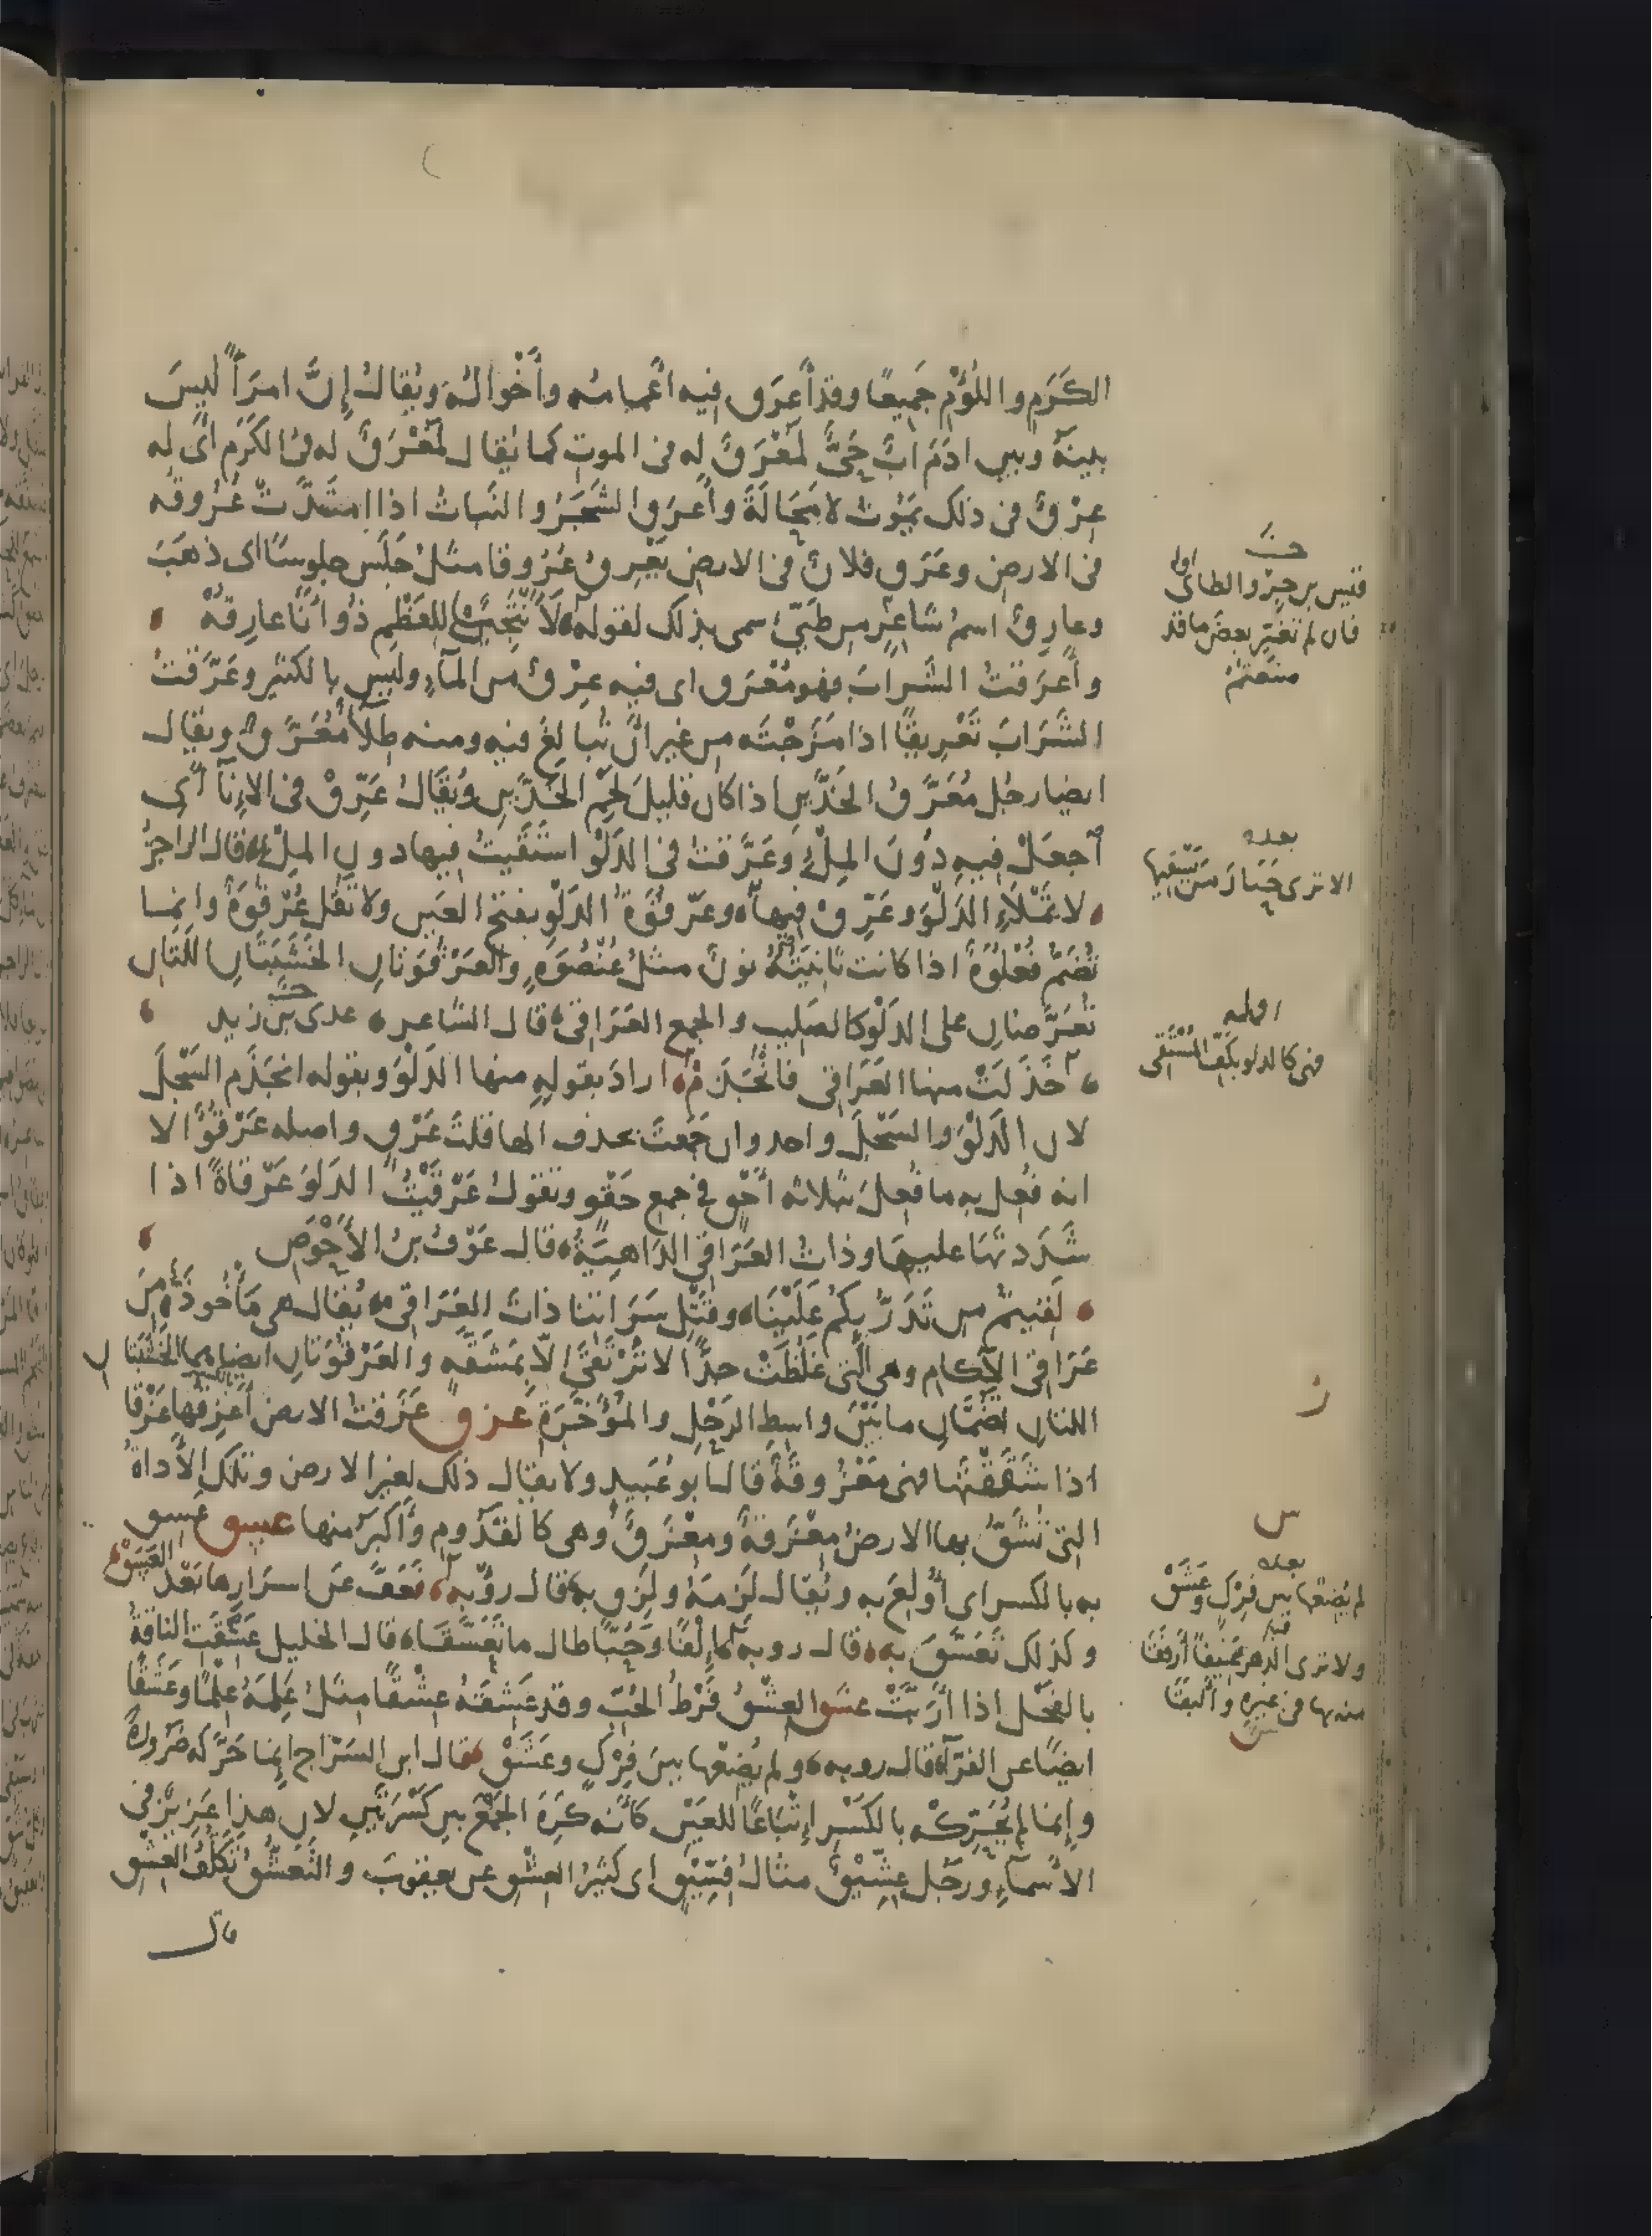 الكَرَمِ واللُؤْمِ جَمِيعًا وقد أَعرَقَ فيه أعمامُه وأَخْوالُه ويُقالُ إِنَّ امرَأً لَيسَ
بينَهُ وبين ادَمَ ابٌ حَىٌّ لَمُعْرَقٌ له فى الموت كما يُقال لمُعْرَقٌ له فى الكَرَم أى له
عِرْقٌ فى ذلك يَمُوت لا مَحَالَةَ وأعرَقَ الشَجَرُ والنَباتُ اذا امتَدَّتْ عُرُوقُه
فى الارض وعَرَقَ فلانٌ فى الارض يَعْرِقُ عُرُوقا مثلُ جَلَسَ جلوسًا اى ذهَبَ
وعارِقٌ اسمُ شاعِرٍ من طَيِّئٍ سمى بذلك لقوله لَأَنْتَحِيَنْ للعَظْمِ ذُو أَنَا عارِقُهْ
وأَعرَقتُ الشَرابَ فهو مُعْرَق اى فيه عِرْقٌ من المآءِ وليس بالكثير وعَرَّقتُ
الشَرَابَ تَعْرِيقًا اذا مَزَجْتَه من غير أَنْ تُبالِغَ فيه ومنه طِلآءٌ مُعَرَّقٌ ويقال
ايضا رجُل مُعَرَّقُ الخَدَّينِ اذا كان قليلَ لَحْمِ الخَدَّينِ ويُقَالُ عَرِّقْ فى الإنآءِ أى
أجعَلْ فيهِ دُونَ المِلْءِ وعَرَّقتُ فى الدَلْوِ استَقَيتُ فيها دون المِلْءِ قال الراجزُ
لا تَمْلَأِ الدَلْوَ وعَرِّقْ فيهَا وعَرْقُوَةُ الدَلْوِ بفتح العَين ولا تَقُل عُرْقُوَةٌ وانما
تُضَمُّ فُعْلُوَةٌ اذا كانت ثانِيَتُهُ نونٌ مثلُ عُنْصُوَةٍ والعَرْقُوَتانِ الخَشَبَتَانِ اللَتانِ
تُعرَّضانِ على الدَلْوِ كالصَليب والجمع العَرَاقِى قال الشاعر عدى بن زيد
خَذَلَتْ منها العَرَاقِى فانْجَذَمْ ارادَ بقولِهِ منها الدَلْوَ وبقوله انجَذَم السَجْلَ
لان الدَلْوَ والسَجْلَ واحد وان جَمعتَ بحذف الها قلتَ عَرْقٍ واصله عَرْقُوٌ الا
انه فُعِل به ما فُعِلَ بثلاثه أَحْقٍ فى جمع حَقْوٍ وتقولُ عَرْقَيْتُ الدَلوَ عَرْقاةً اذا
شَدَدتَهَا عليهِا وذاتُ العَرَاقِى الدَاهِيَةُ قال عَوْفُ بنُ الأَحْوَصِ
لَقيتُمْ من تَدَرُّئِكُمْ عَلَيْنَا وقَتْلِ سَرَاتِنا ذاتَ العَرَاقِى يُقال هى مَأْخُوذَةٌ مِنْ
عَرَاقِى الآكام وهى الَّتى غَلُظَتْ جدًّا لا تُرْتَقَى الّا بمَشَقّهٍ والعَرْقُوَتانِ ايضا هما الخَشَبَتا ن
اللتانِ تَضُمَّانِ ما بَيْنَ واسِطِ الرَحْلِ والمُؤْخَرَةِ عزق عَزَقتُ الارضَ أَعْزِقُها عَزْقًا
اذا شَقَقْتَها فهى مَعْزُوقَةٌ قال أبو عُبَيدٍ ولا يقال ذلك لغير الارض وتلك الأداةُ
التى تُشَقُّ بها الارضُ مِعْزَقةٌ ومِعْزَقٌ وهى كالقَدُومِ وأَكْبَرُ منها عسق عَسِقَ
به بالكسر اى أُولِعَ به ويُقال لَزِمَهُ ولَزِقَ به قال رؤبه فَعَفَّ عن اسرَارِها بَعْدَ العَسَقْ
وكذلك تَعَسَّقَ به قال روبه إِلْفًا وَحُبًّا طال ما تَعَسَّقَا قال الخليل عَسِقَتِ الناقةُ
بالفَحْل اذا أَرَبَّتْ عشق العِشْقُ فَرْطُ الحُبّ وقد عَشِقَهُ عِشْقًا مثلُ عَلِمَهُ عِلْمًا وعَشَقًا
ايضًا عن الفرّآءِ قال روبه ولم يُضِعْها بينَ فِرْكٍ وعَشَقْ قال ابن السَرّاج إِنما حَرَّكَه ضَرُورةً
وإنما لم يُحَرِّكْه بالكَسْرِ إتْباعًا للعَيْنِ كأنَّه كَرِهَ الجَمْعَ بين كَسْرَتَينِ لان هذا عَزِيزٌ فى
الأسمآءِ ورَجُل عِشِّيقٌ مثالُ فِسِّيقٍ اى كثيرُ العِشْقِ عن يعقوبَ والتَعَشُّقُ تَكَلُّفُ العِشْق
قال
قيس بن جِرْوَة الطائى
اوله
فان لم تغير بعض ما قد
صنعتم
بعده
الا ترى حَبَارَ مَن يَسْقِيها
اوله
فهى كالدلو بكَفِّ المُسْتَقِى
ز
س
بعده
لم يُضِعْها بين فِرْكٍ وعَشَقْ
ولا ترى الدهر عَنِيفًا أرفَقَا
منه بها فى غيره وأَلْبَقَا